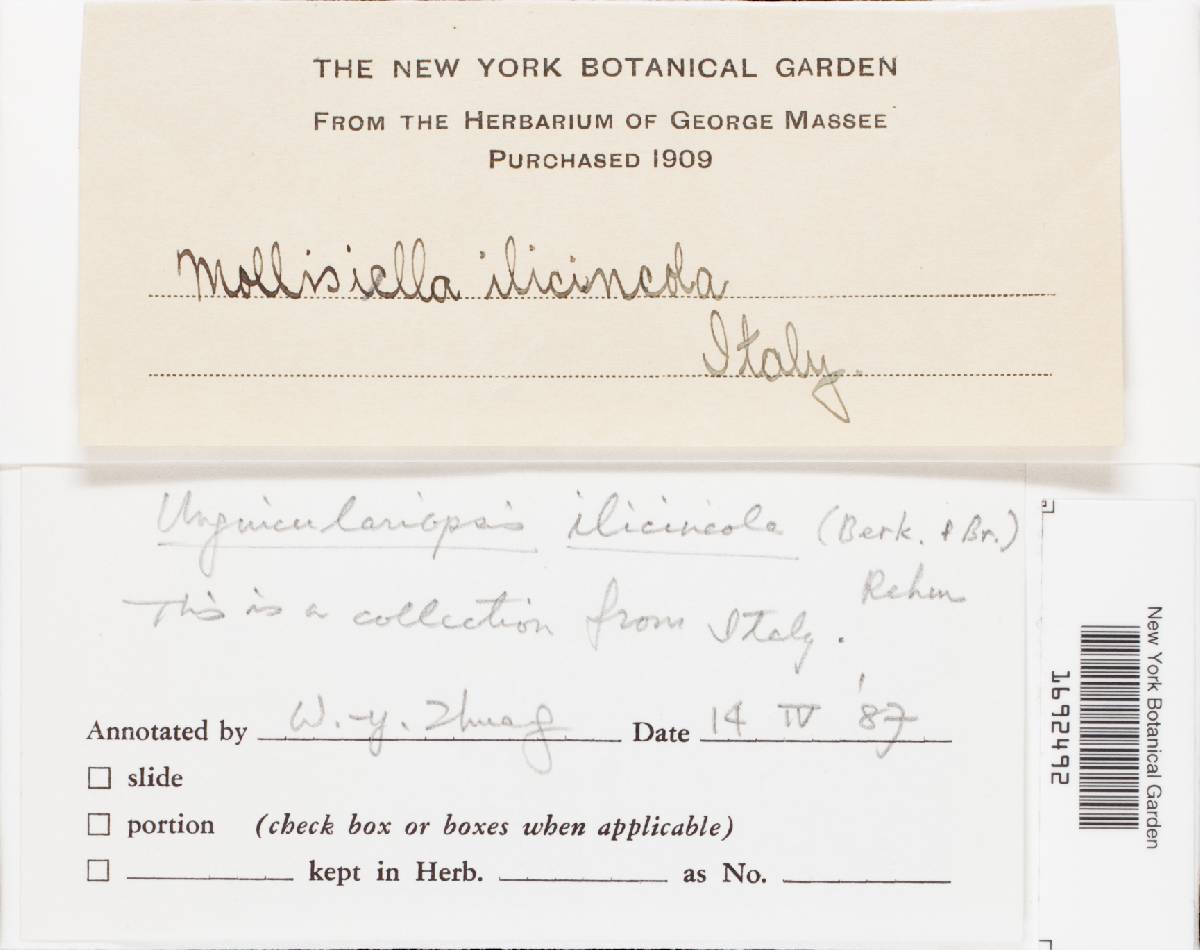 THE NEW YORK BOTANICAL GARDEN
FROM THE HERBARIUM OF GEORGE MASSEE
PURCHASED 1909
Mollisiella ilicincola
Italy.
Unguiculariopsis ilicincola (Berk. & Br.)
Rehm
This is a collection from Italy.
Annotated by W.-y. Zhuang Date 14 IV '87
☐ slide
☐ portion (check box or boxes when applicable)
☐ kept in Herb. as No.
New York Botanical Garden
1692492